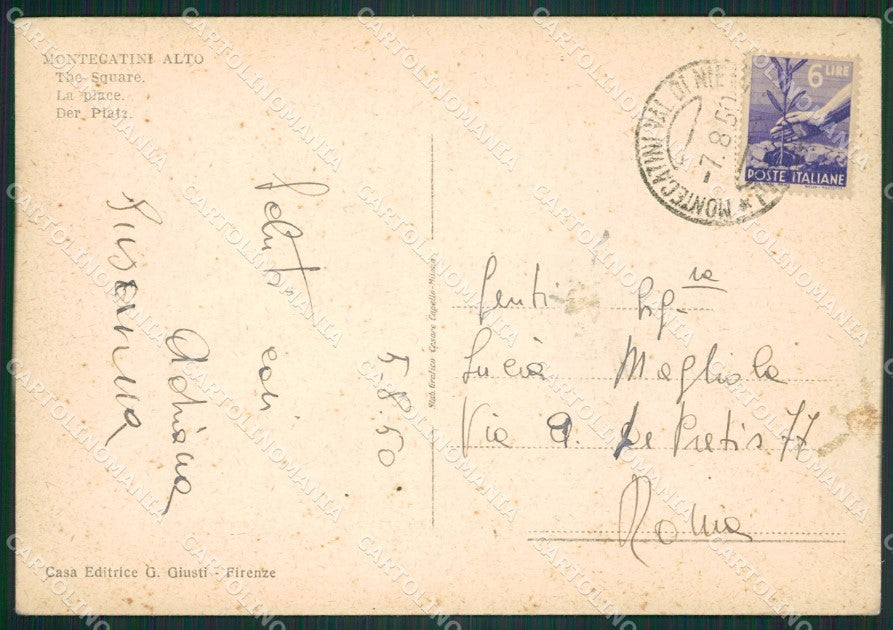 MONTECATINI ALTO
The Square.
La place.
Der Platz.
6 LIRE
POSTE ITALIANE
MONTECATINI VAL DI NIE
-7.8.50
5-8-50
Saluti cari
Adriana
Susanna
Stab. Grafico Cesare Capello-Milano
Gent. Sig.na
Lucia Magliola
Via A. De Pretis 77
Roma
Casa Editrice G. Giusti - Firenze
CARTOLINOMANIA